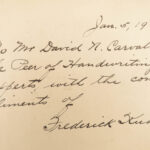 Jan. 5, 19
To Mr David N. Carval
e Peer of Handwritin
xperts, with the com
liments of
Frederick Ku